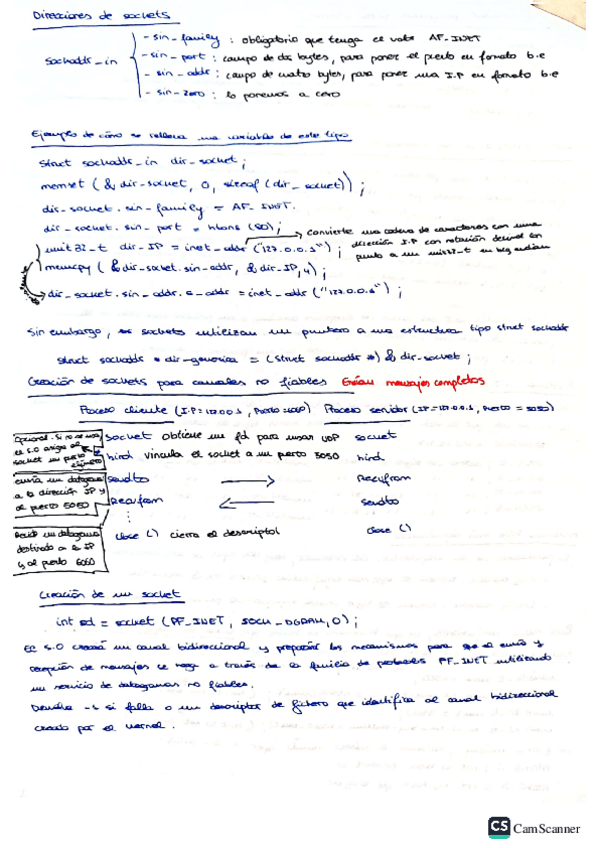 Direcciones de sockets
sockaddr_in
- sin_family : obligatorio que tenga el valor AF_INET
- sin_port : campo de dos bytes, para poner el puerto en formato b.e
- sin_addr : campo de cuatro bytes, para poner una I.P en formato b.e
- sin_zero : lo ponemos a cero
Ejemplo de cómo se rellena una variable de este tipo
struct sockaddr_in dir_socket;
memset (&dir_socket, 0, sizeof(dir_socket));
dir_socket.sin_family = AF_INET.
dir_socket.sin_port = htons (80);
uint32_t dir_IP = inet_addr ("127.0.0.1");
convierte una cadena de caracteres con una
dirección I.P con notación decimal con
punto a un uint32_t en big endian
memcpy (&dir_socket.sin_addr, &dir_IP, 4);
dir_socket.sin_addr.s_addr = inet_addr ("127.0.0.1");
Sin embargo, los sockets utilizan un puntero a una estructura tipo struct sockaddr
struct sockaddr * dir_generica = (struct sockaddr *) & dir_socket;
Creación de sockets para canales no fiables Envían mensajes completos
Proceso cliente (I.P=127.0.0.1, Puerto=6060) Proceso servidor (IP=127.0.0.1, Puerto = 5050)
Opcional. Si no se usa
el S.O asigna al
socket un puerto
efímero
socket obtiene un fd para usar UDP socket
bind vincula el socket a un puerto 5050 bind
envía un datagrama
a la dirección IP y
al puerto 5050
sendto → Recvfrom
Recvfrom ← sendto
Recibe un datagrama
destinado a la IP
y al puerto 6060
close () cierra el descriptor close ()
Creación de un socket
int sd = socket (PF_INET, SOCK_DGRAM, 0);
El S.O creará un canal bidireccional y preparará los mecanismos para que el envío y
recepción de mensajes se haga a través de la familia de protocolos PF_INET utilizando
un servicio de datagramas no fiables.
Devuelve -1 si falla o un descriptor de fichero que identifica al canal bidireccional
creado por el kernel.
CS CamScanner